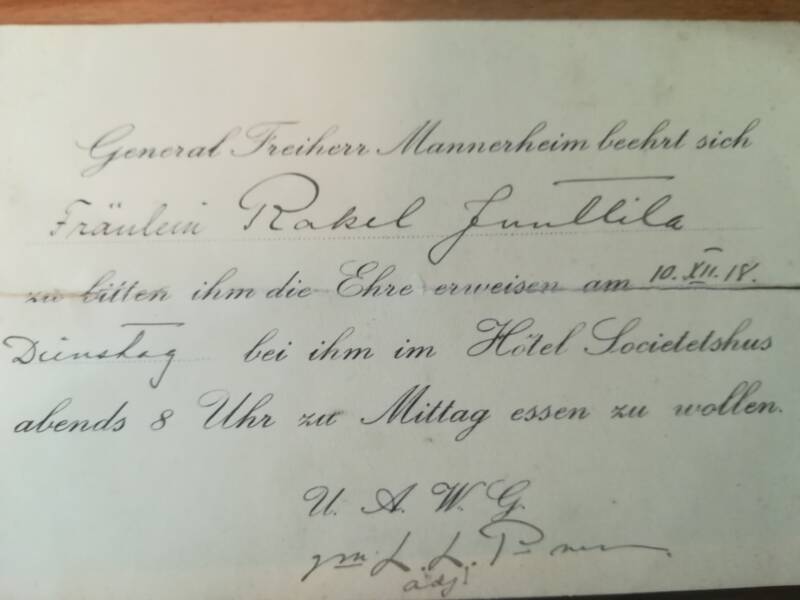 General Freiherr Mannerheim beehrt sich
Fräulein Rakel Junttila
zu bitten ihm die Ehre erweisen am 10.XII.18.
Dienstag bei ihm im Hôtel Societetshus
abends 8 Uhr zu Mittag essen zu wollen.
U. A. W. G.
L. L.
adj.